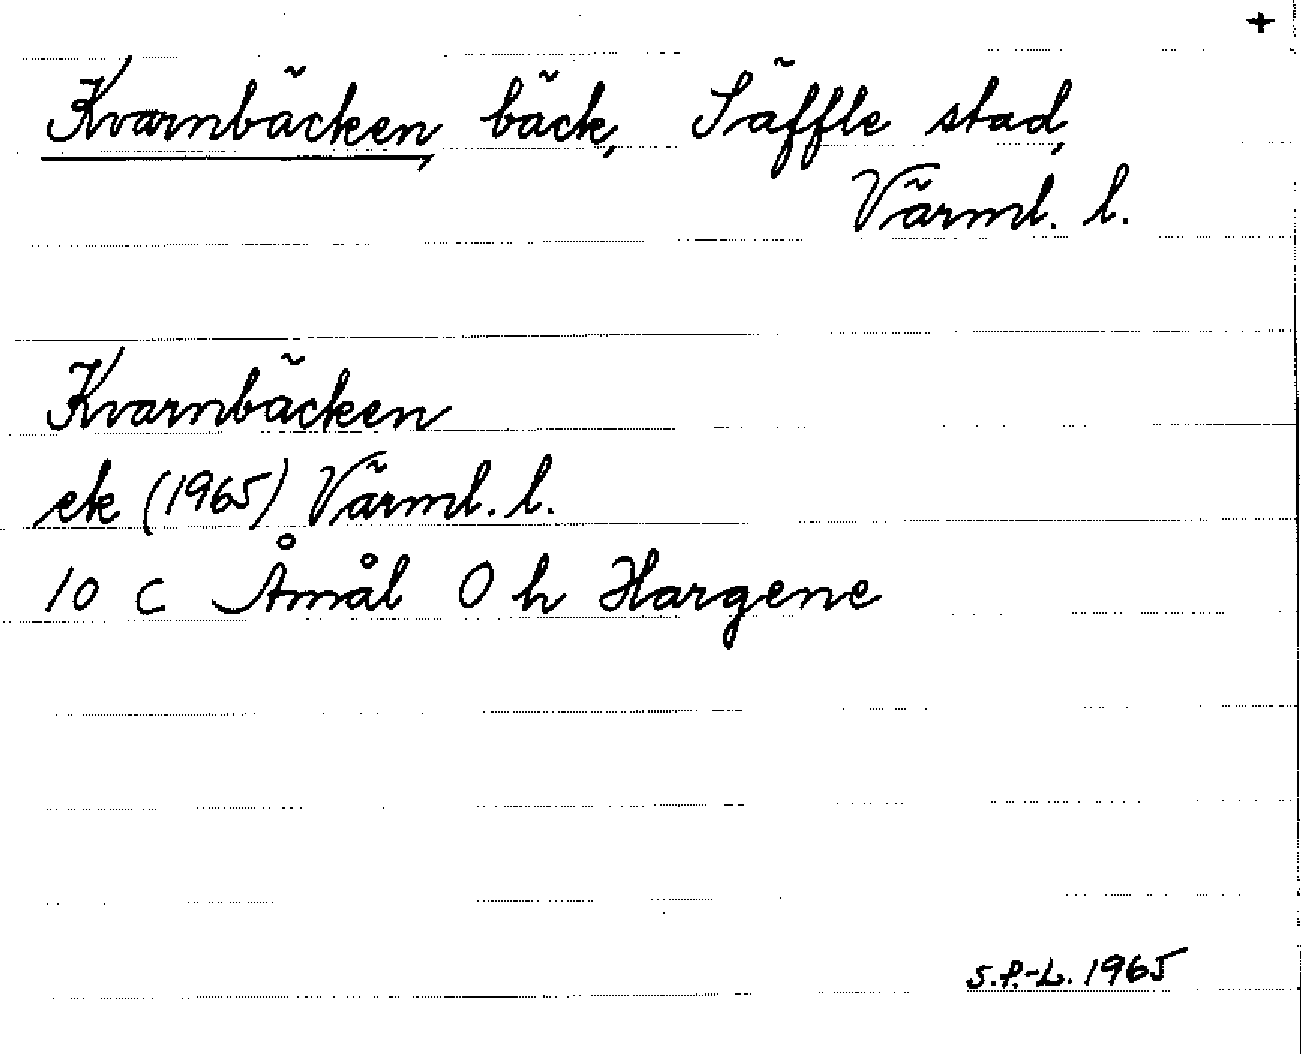 +
Kvarnbäcken, bäck, Säffle stad,
Värml. l.
Kvarnbäcken
ek (1965) Värml. l.
10 C Åmål O h Hargene
S.P.-L. 1965